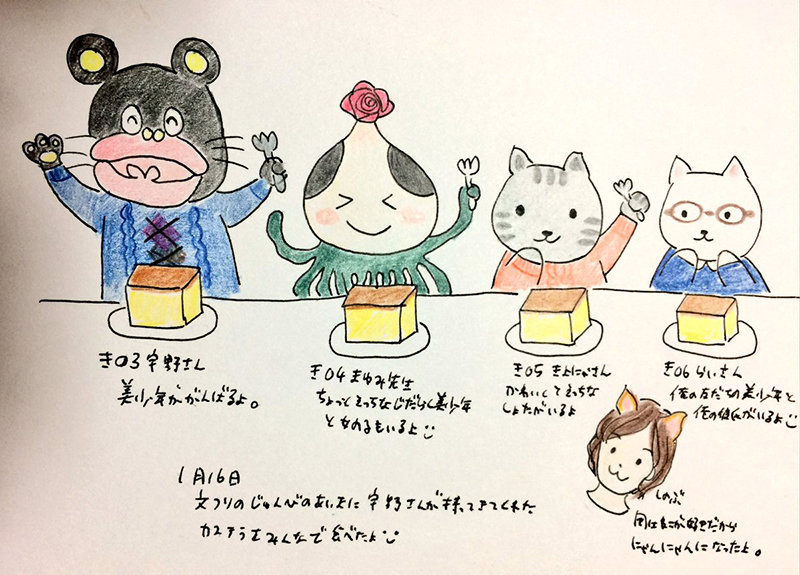 き03 宇野さん
美少年ががんばるよ。
き04 まゆみ先生
ちょっとえっちなじだらく美少年
と女の子もいるよ
き05 きよにゃさん
かわいくてえっちな
しょたがいるよ
き06 らいさん
俺の友だちの美少年と
俺の彼氏がいるよ
しのぶ
岡はねこが好きだから
にゃんにゃんになったよ。
1月16日
文フリのじゅんびのあいまに宇野さんが持ってきてくれた
カステラをみんなで食べたよ